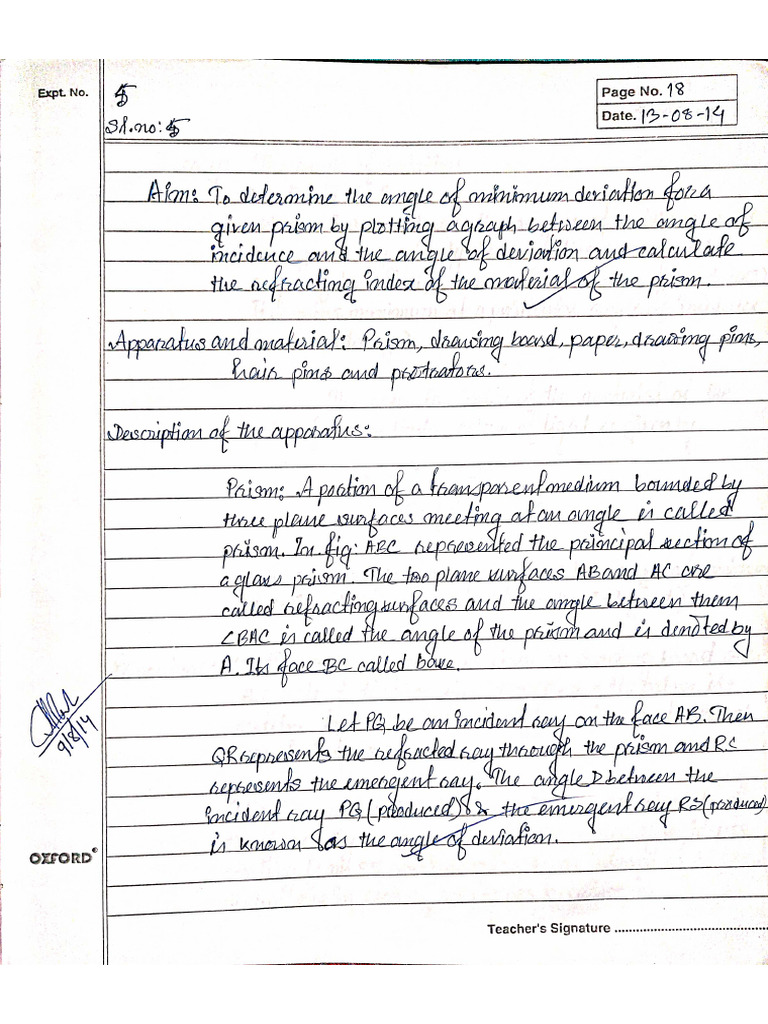 Expt. No. 5
Page No. 18
Sl.no: 5
Date. 13-08-14
Aim: To determine the angle of minimum deviation for a
given prism by plotting a graph between the angle of
incidence and the angle of deviation and calculate
the refracting index of the material of the prism.
Apparatus and material: Prism, drawing board, paper, drawing pins,
hair pins and protrators.
Description of the apparatus:
Prism: A portion of a transparent medium bounded by
three plane surfaces meeting at an angle is called
prism. In fig: ABC represented the principal section of
a glass prism. The two plane surfaces AB and AC are
called refracting surfaces and the angle between them
∠BAC is called the angle of the prism and is denoted by
A. Its face BC called base.
Let PQ be an incident ray on the face AB. Then
QR represents the refracted ray through the prism and RC
represents the emergent ray. The angle D between the
incident ray PQ (produced) & the emergent ray RS (produced)
is known as the angle of deviation.
9/8/14
OXFORD
Teacher's Signature